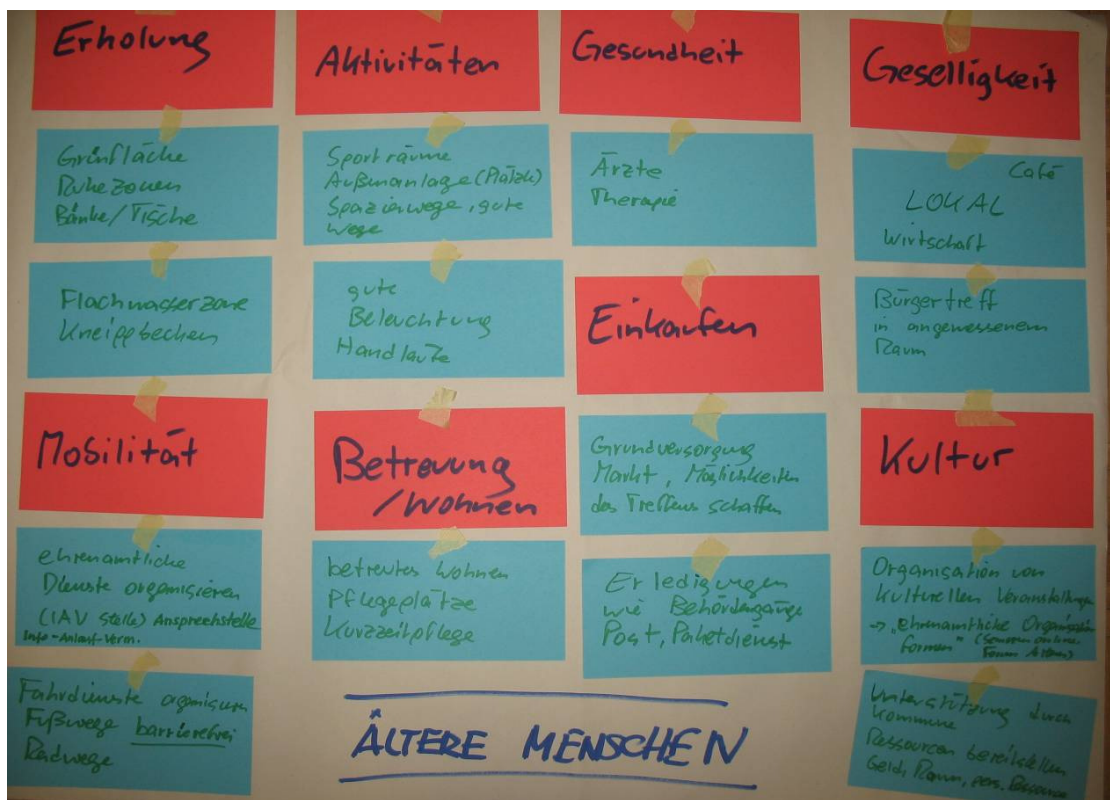 Erholung
Grünfläche
Ruhezonen
Bänke/Tische
Flachwasserzone
Kneippbecken
Mobilität
ehrenamtliche
Dienste organisieren
(IAV Stelle) Ansprechstelle
Info-Anlauf-Verm.
Fahrdienste organisieren
Fußwege barrierefrei
Radwege
Aktivitäten
Sporträume
Außenanlage (Plätze)
Spazierwege, gute
Wege
gute
Beleuchtung
Handläufe
Betreuung
/Wohnen
betreutes Wohnen
Pflegeplätze
Kurzzeitpflege
Gesundheit
Ärzte
Therapie
Einkaufen
Grundversorgung
Markt, Möglichkeiten
des Treffens schaffen
Erledigungen
wie Behördengänge
Post, Paketdienst
Geselligkeit
Café
LOKAL
Wirtschaft
Bürgertreff
in angemessenem
Raum
Kultur
Organisation von
Kulturellen Veranstaltungen
-> "ehrenamtliche Organisation
formen" (Senioren online
Forum
Unterstützung durch
Kommune
Ressourcen bereitstellen
Geld, Raum, pers. Ressource
ÄLTERE MENSCHEN